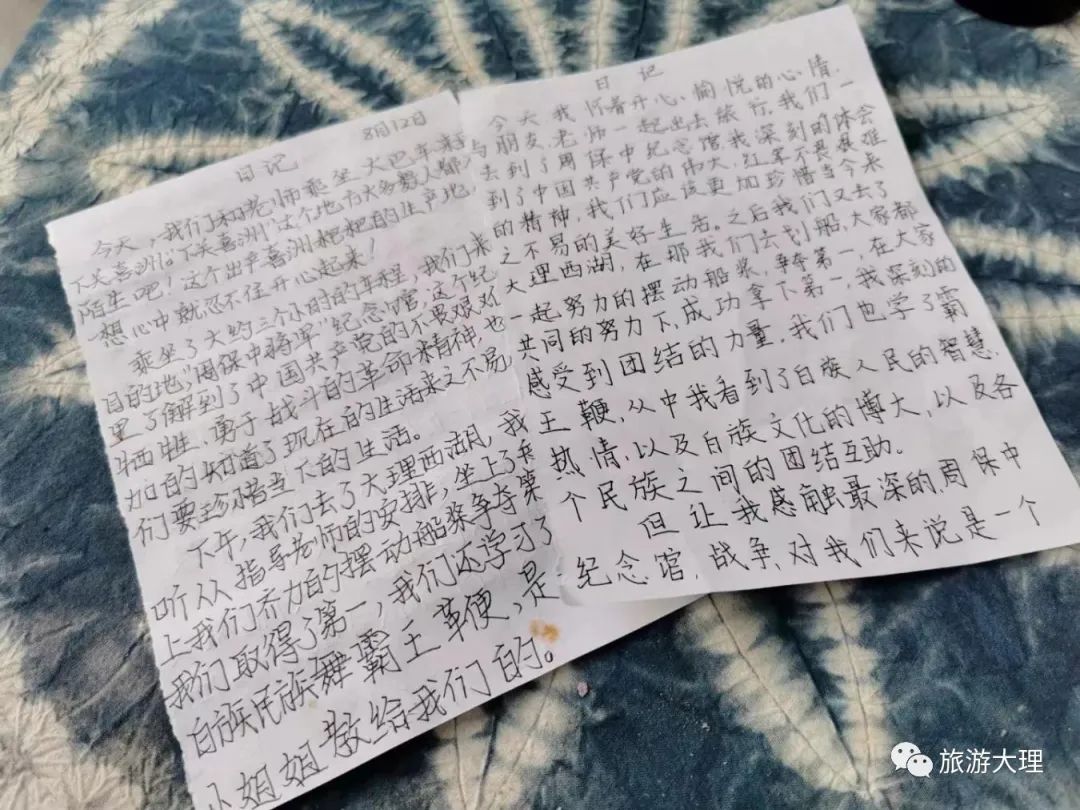 日记
8月12日
今天,我们和老师乘坐大巴车来到
下关喜洲。"下关喜洲"这个地方大多数人都
陌生吧!这个出乎喜洲粑粑的生产地,
想心中就忍不住开心起来!
乘坐了大约三个小时的车程,我们来
目的地,"周保中将军"纪念馆,这个纪
里了解到了中国共产党的不畏艰难
牺牲、勇于战斗的革命精神,也
加的知道了现在的生活来之不易
们要珍惜当下的生活。
下午,我们去了大理西湖,我
听从指导老师的安排,坐上了乘
上我们齐力的摆动船桨争夺第
我们取得了第一,我们还学习了
白族民族舞霸王鞭,是
小姐姐教给我们的。
日记
今天我怀着开心、愉悦的心情,
与朋友、老师一起出去旅行,我们一
去到了周保中纪念馆,我深刻的体会
到了中国共产党的伟大,红军不畏艰难
的精神,我们应该更加珍惜当今来
之不易的美好生活。之后我们又去了
大理西湖,在那我们去划船,大家都
一起努力的摆动船桨,争夺第一,在大家
共同的努力下,成功拿下第一,我深刻的
感受到团结的力量,我们也学了霸
王鞭,从中我看到了白族人民的智慧、
热情,以及白族文化的博大,以及各
个民族之间的团结互助。
但让我感触最深的,周保中
纪念馆,战争,对我们来说是一个
旅游大理